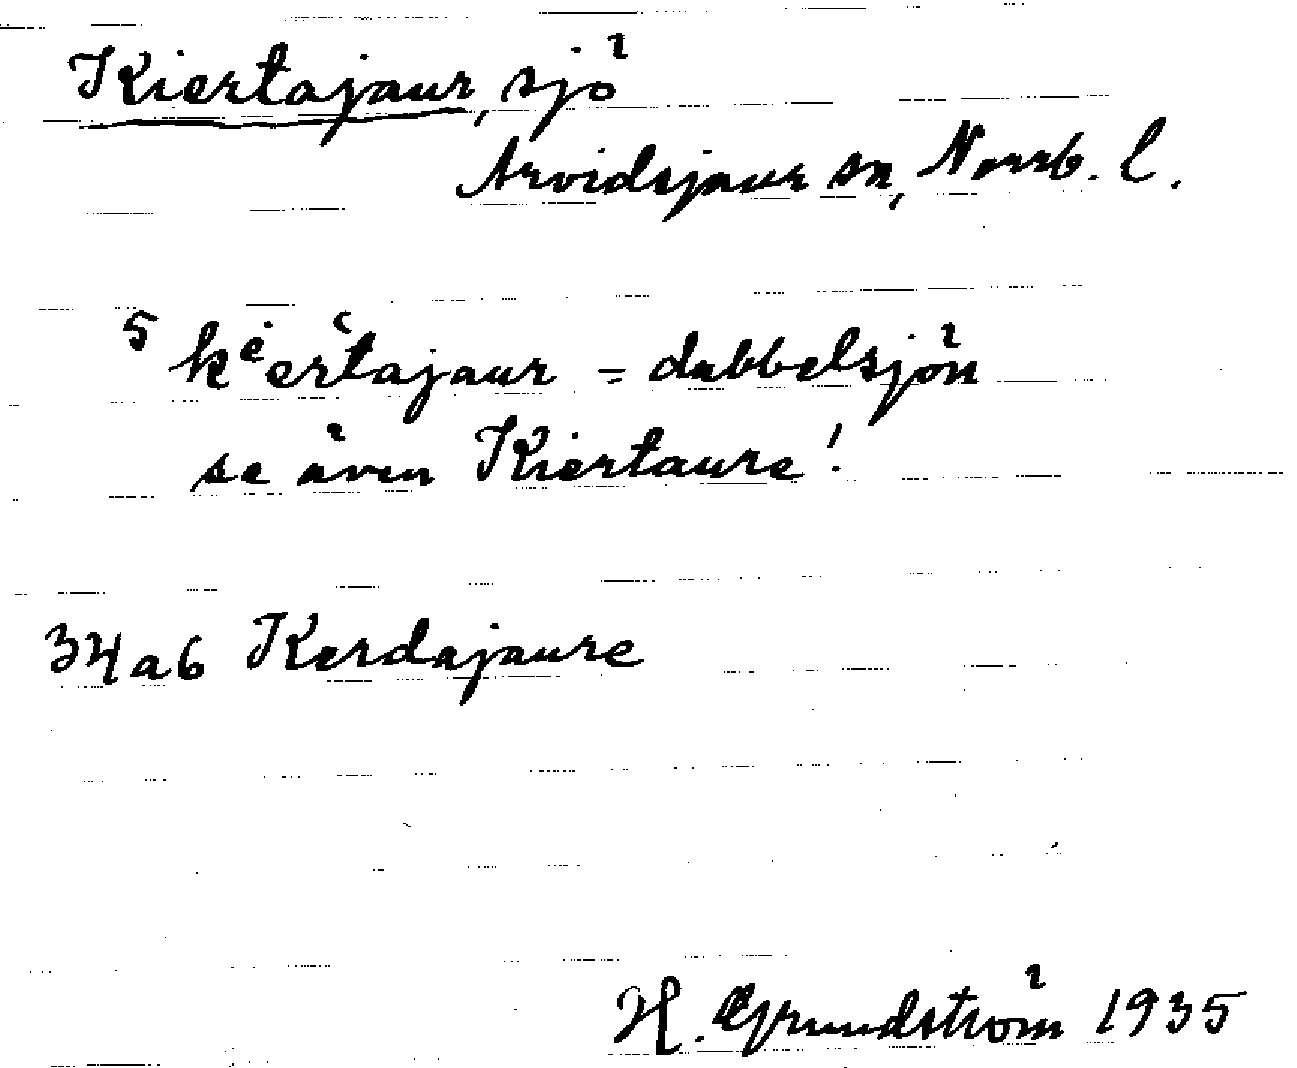 Kiertajaur, sjö
Arvidsjaur sn, Norrb. l.
5 kᵉ̇ertʿajaur = dubbelsjön
se även Kiertaure!
34a6 Kerdajaure
H. Grundström 1935